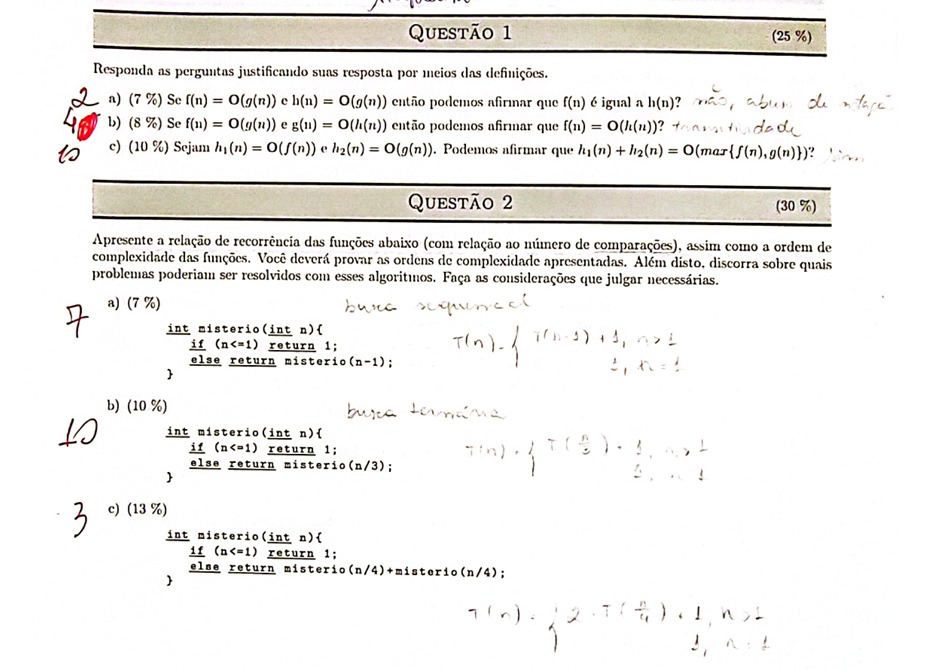 QUESTÃO 1 (25 %)
Responda as perguntas justificando suas resposta por meios das definições.
2 a) (7 %) Se f(n) = O(g(n)) e h(n) = O(g(n)) então podemos afirmar que f(n) é igual a h(n)? não, abuso de notação
4 b) (8 %) Se f(n) = O(g(n)) e g(n) = O(h(n)) então podemos afirmar que f(n) = O(h(n))? transitividade
10 c) (10 %) Sejam h₁(n) = O(f(n)) e h₂(n) = O(g(n)). Podemos afirmar que h₁(n) + h₂(n) = O(max{f(n), g(n)})? sim
QUESTÃO 2 (30 %)
Apresente a relação de recorrência das funções abaixo (com relação ao número de comparações), assim como a ordem de
complexidade das funções. Você deverá provar as ordens de complexidade apresentadas. Além disto, discorra sobre quais
problemas poderiam ser resolvidos com esses algoritmos. Faça as considerações que julgar necessárias.
7 a) (7 %) busca sequencial
int misterio(int n){
if (n<=1) return 1;
else return misterio(n-1);
}
T(n) = { T(n-1) + 1, n > 1
1, n = 1
10 b) (10 %) busca ternária
int misterio(int n){
if (n<=1) return 1;
else return misterio(n/3);
}
T(n) = { T(n/3) + 1, n > 1
1, n = 1
3 c) (13 %)
int misterio(int n){
if (n<=1) return 1;
else return misterio(n/4)+misterio(n/4);
}
T(n) = { 2 · T(n/4) + 1, n > 1
1, n = 1